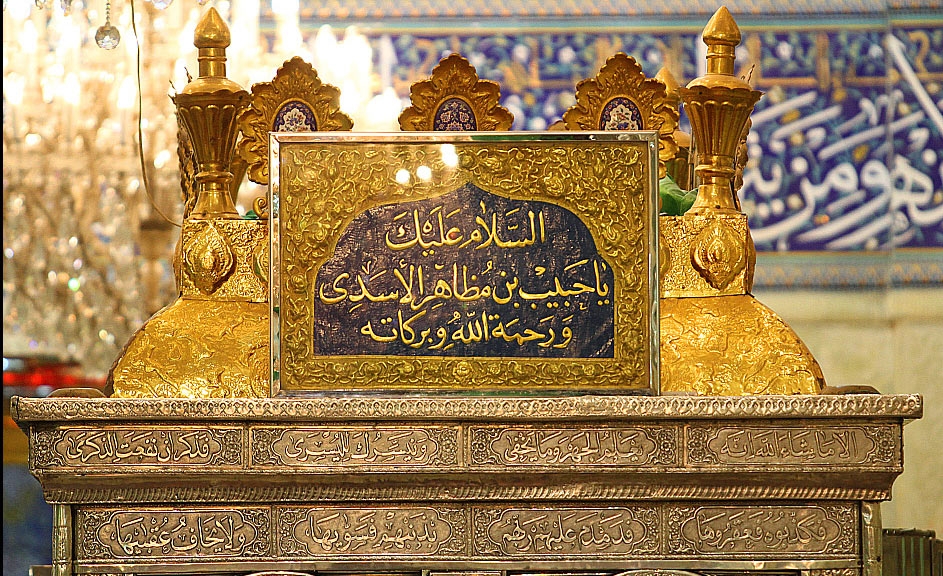 السَّلَامُ عَلَيْكَ
يَا حَبِيْب بْن مُظَاهِر الأَسَدِى
وَرَحْمَةُ اللّٰهُ وَبَركَاته
الا ما شاء الله انه يعلم الجهر وما يخفى ونيسرك لليسرى فذكر ان نفعت الذكرى
فكذبوه فعقروها فدمدم عليهم ربهم بذنبهم فسويها ولا يخاف عقبيها